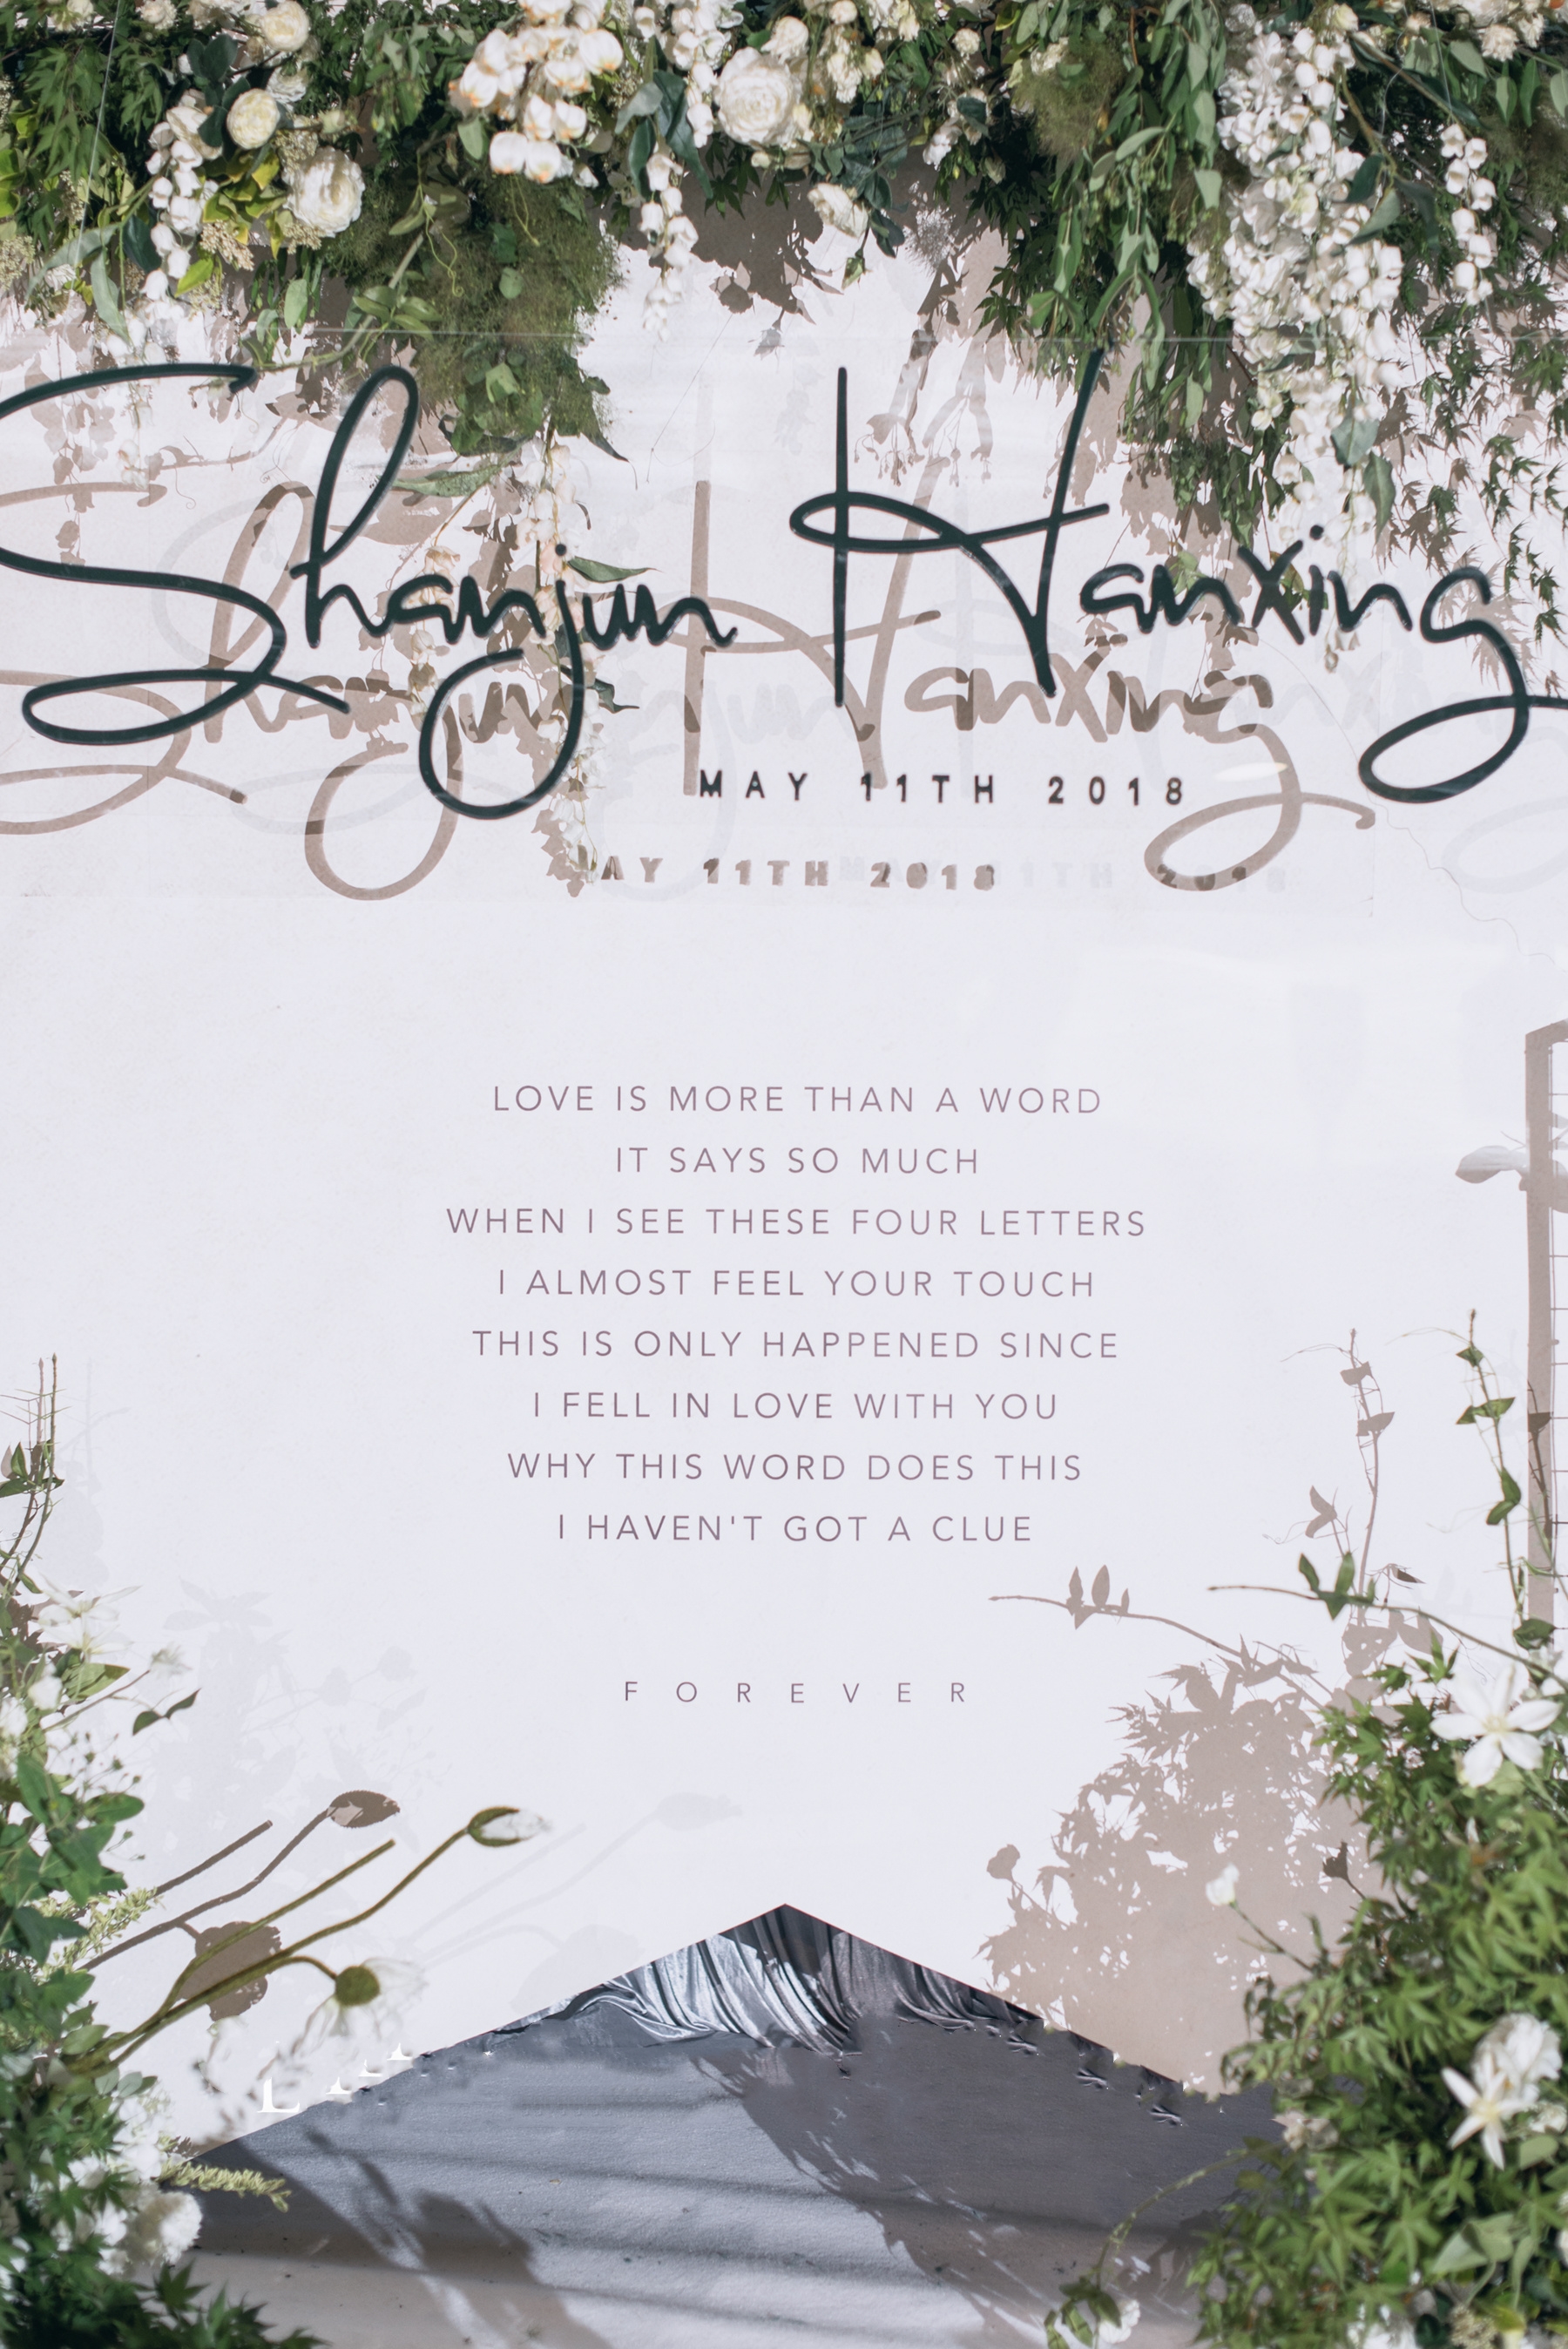 Shanjun Hanxing
MAY 11TH 2018
LOVE IS MORE THAN A WORD
IT SAYS SO MUCH
WHEN I SEE THESE FOUR LETTERS
I ALMOST FEEL YOUR TOUCH
THIS IS ONLY HAPPENED SINCE
I FELL IN LOVE WITH YOU
WHY THIS WORD DOES THIS
I HAVEN'T GOT A CLUE
FOREVER